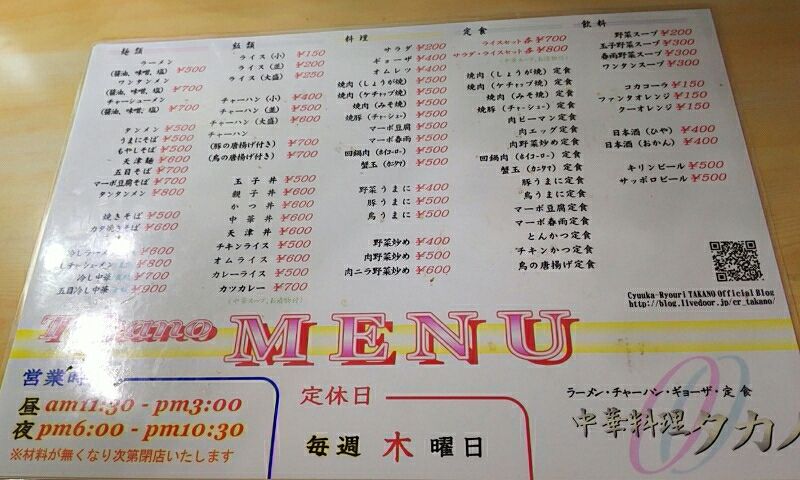 麺類
ラーメン
(醤油, 味噌, 塩) ¥500
ワンタンメン
(醤油, 味噌, 塩) ¥700
チャーシューメン
(醤油, 味噌, 塩) ¥700
タンメン ¥500
うまにそば ¥500
もやしそば ¥500
天津麺 ¥600
五目そば ¥700
マーボ豆腐そば ¥700
タンタンメン ¥800
焼きそば ¥500
カタ焼きそば ¥600
冷しラーメン ¥600
¥800
冷し中華 ¥700
五目冷し中華 ¥900
飯類
ライス (小) ¥150
ライス (並) ¥200
ライス (大盛) ¥250
チャーハン (小) ¥400
チャーハン (並) ¥500
チャーハン (大盛) ¥600
チャーハン
(豚の唐揚げ付き) ¥700
(鳥の唐揚げ付き) ¥700
玉子丼 ¥500
親子丼 ¥600
かつ丼 ¥600
中華丼 ¥600
天津丼 ¥600
チキンライス ¥500
オムライス ¥600
カレーライス ¥500
カツカレー ¥700
(中華スープ, お漬物付)
料理
サラダ ¥200
ギョーザ ¥400
オムレツ ¥400
焼肉 (しょうが焼) ¥500
焼肉 (ケチャップ焼) ¥500
焼肉 (みそ焼) ¥500
焼豚 (チャーシュー) ¥500
マーボ豆腐 ¥500
マーボ春雨 ¥500
回鍋肉 (ホイコーロー) ¥500
蟹玉 (カニタマ) ¥500
野菜うまに ¥400
豚うまに ¥500
鳥うまに ¥500
野菜炒め ¥400
肉野菜炒め ¥500
肉ニラ野菜炒め ¥600
定食
ライスセット 各 ¥700
サラダ・ライスセット 各 ¥800
焼肉 (しょうが焼) 定食
焼肉 (ケチャップ焼) 定食
焼肉 (みそ焼) 定食
焼豚 (チャーシュー) 定食
肉ピーマン定食
肉エッグ定食
肉野菜炒め定食
回鍋肉 (ホイコーロー) 定食
蟹玉 (カニタマ) 定食
豚うまに定食
鳥うまに定食
マーボ豆腐定食
マーボ春雨定食
とんかつ定食
チキンかつ定食
鳥の唐揚げ定食
飲料
野菜スープ ¥200
玉子野菜スープ ¥300
春雨野菜スープ ¥300
ワンタンスープ ¥300
コカコーラ ¥150
ファンタオレンジ ¥150
クーオレンジ ¥150
日本酒 (ひや) ¥400
日本酒 (おかん) ¥400
キリンビール ¥500
サッポロビール ¥500
Cyuuka-Ryouri TAKANO Official Blog
http://blog.livedoor.jp/cr_takano/
Takano MENU
営業時
昼 am11:30 - pm3:00
夜 pm6:00 - pm10:30
※材料が無くなり次第閉店いたします
定休日
毎週 木 曜日
ラーメン・チャーハン・ギョーザ・定食
中華料理 タカノ